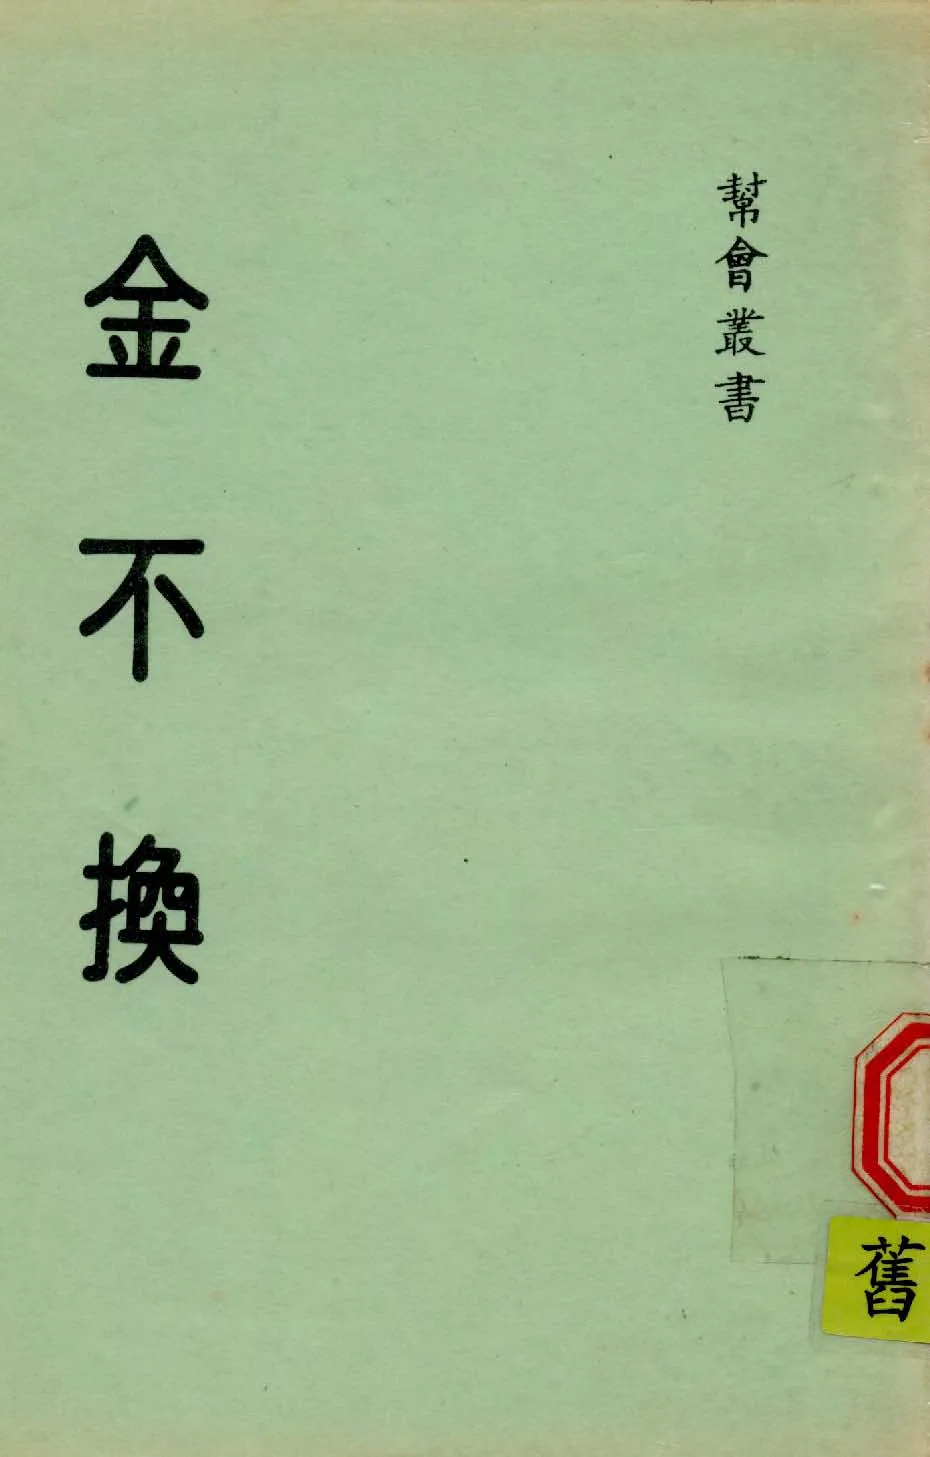 幫會叢書
金不換
舊